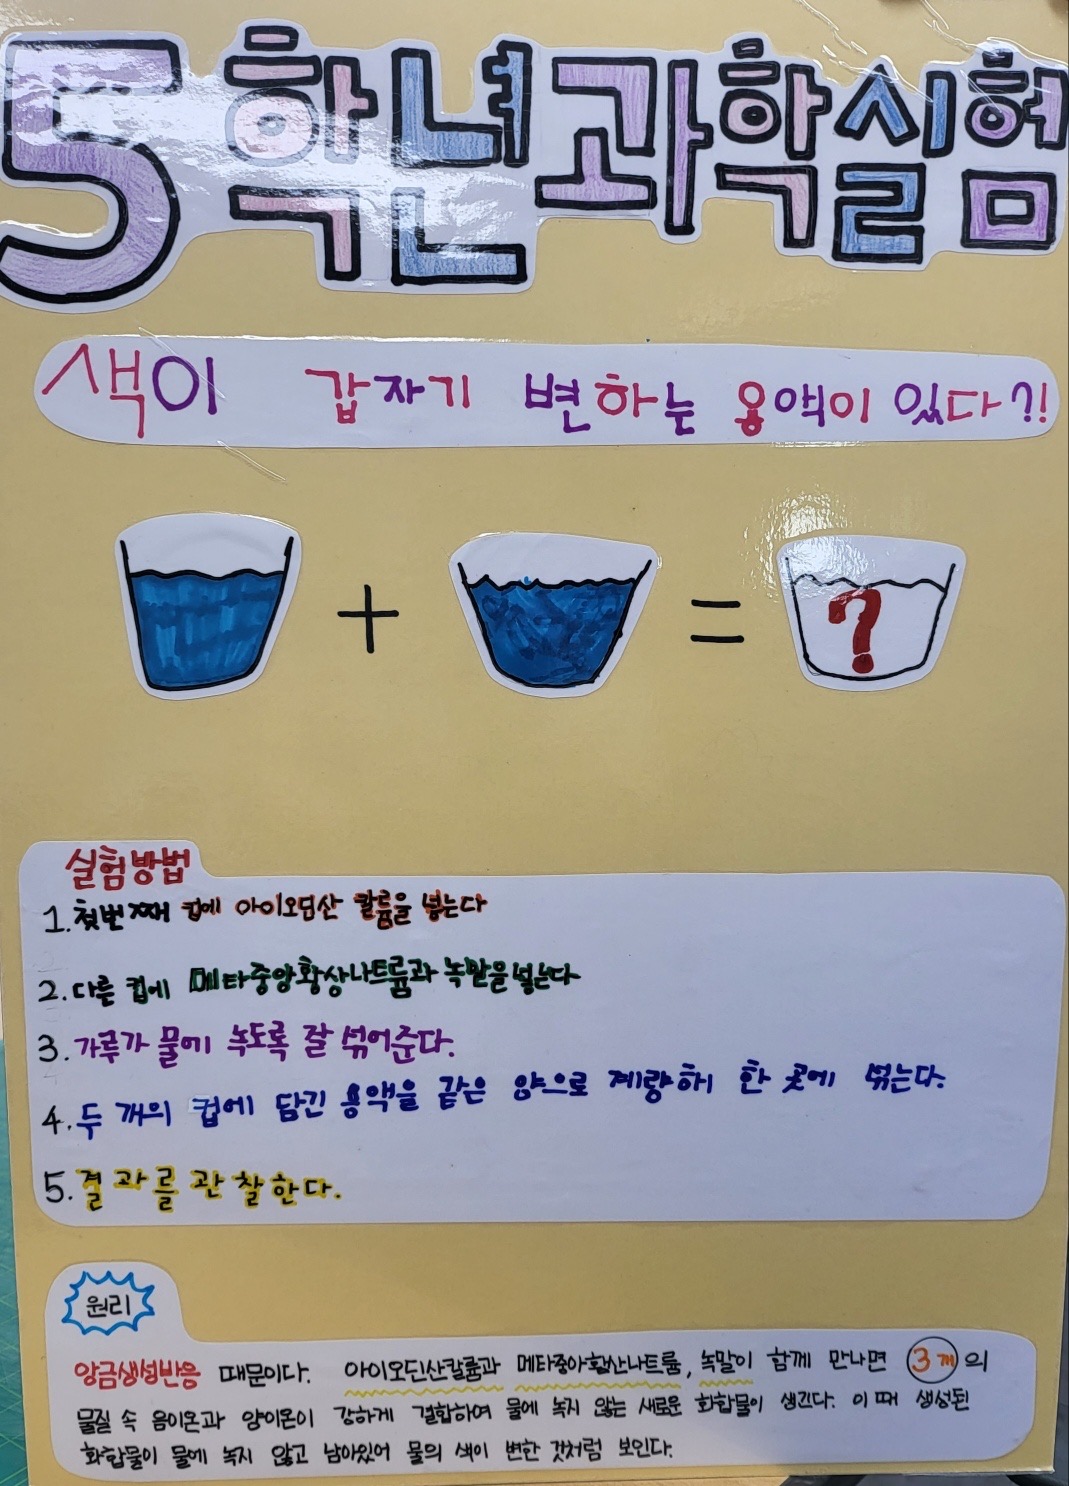 5학년과학실험
색이 갑자기 변하는 용액이 있다?!
+ =
?
실험방법
1. 첫번째 컵에 아이오딤산 칼륨을 넣는다
2. 다른 컵에 메타중앙황상나트륨과 녹말을 넣는다
3. 가루가 물에 녹도록 잘 섞어준다.
4. 두 개의 컵에 담긴 용액을 같은 양으로 계량해 한 곳에 섞는다.
5. 결과를 관찰한다.
원리
앙금생성반응 때문이다. 아이오딘산칼륨과 메타중아황산나트륨, 녹말이 함께 만나면 3개의
물질 속 음이온과 양이온이 강하게 결합하여 물에 녹지 않는 새로운 화합물이 생긴다. 이 때 생성된
화합물이 물에 녹지 않고 남아있어 물의 색이 변한 것처럼 보인다.